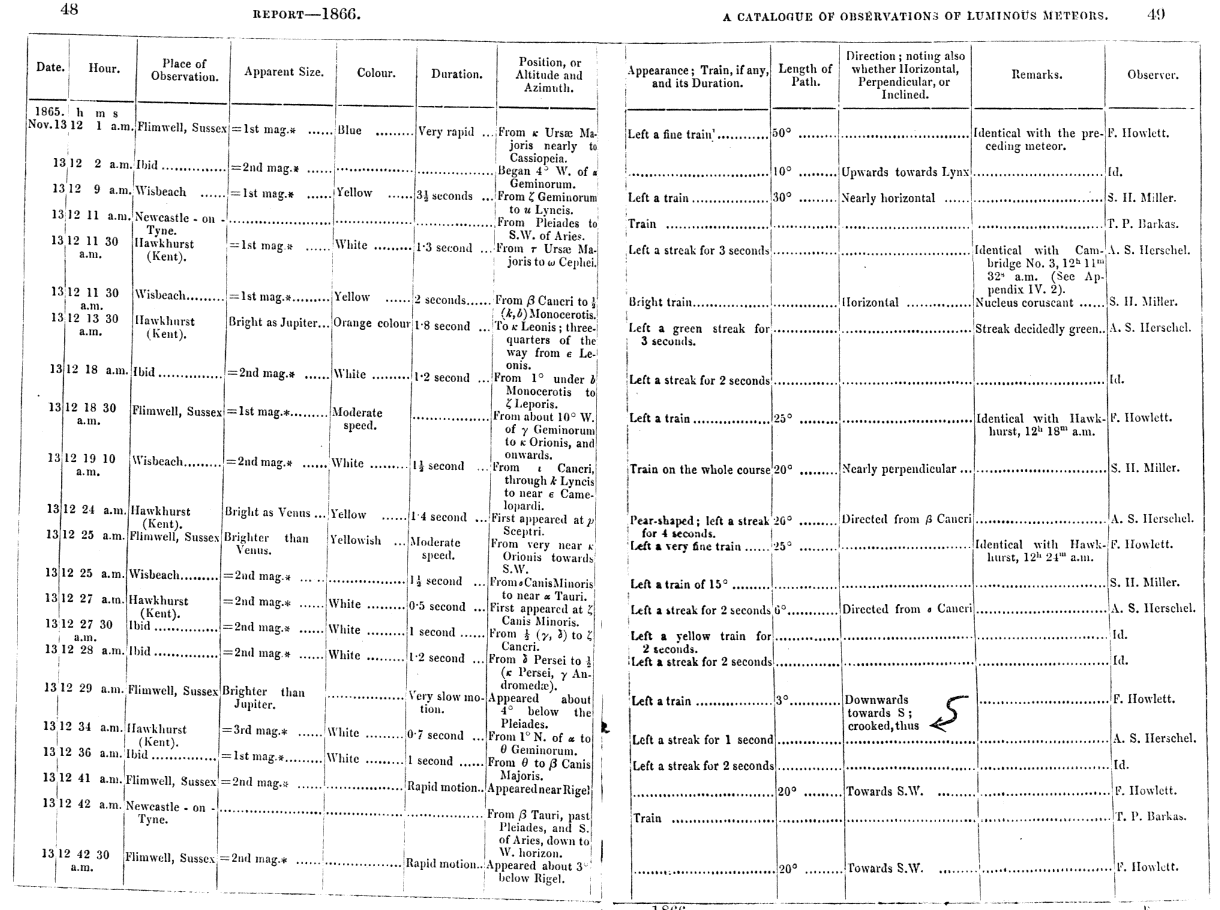 48 REPORT—1866.
A CATALOGUE OF OBSERVATIONS OF LUMINOUS METEORS. 49
Date. | Hour. | Place of Observation. | Apparent Size. | Colour. | Duration. | Position, or Altitude and Azimuth. | Appearance; Train, if any, and its Duration. | Length of Path. | Direction; noting also whether Horizontal, Perpendicular, or Inclined. | Remarks. | Observer.
1865. | h m s
Nov.13 | 12 1 a.m. | Flimwell, Sussex | =1st mag.* ...... | Blue ......... | Very rapid ... | From κ Ursæ Majoris nearly to Cassiopeia. | Left a fine train ............ | 50° ......... | .............................. | Identical with the preceding meteor. | F. Howlett.
13 | 12 2 a.m. | Ibid ............... | =2nd mag.* ...... | .................. | .................. | Began 4° W. of α Geminorum. | .............................. | 10° ......... | Upwards towards Lynx | .............................. | Id.
13 | 12 9 a.m. | Wisbeach ...... | =1st mag.* ...... | Yellow ...... | 3½ seconds ... | From ζ Geminorum to u Lyncis. | Left a train .................. | 30° ......... | Nearly horizontal ...... | .............................. | S. H. Miller.
13 | 12 11 a.m. | Newcastle-on-Tyne. | .................. | .................. | .................. | From Pleiades to S.W. of Aries. | Train ........................ | .................. | .............................. | .............................. | T. P. Barkas.
13 | 12 11 30 a.m. | Hawkhurst (Kent). | =1st mag.* ...... | White ......... | 1·3 second ... | From τ Ursæ Majoris to ω Cephei. | Left a streak for 3 seconds | .................. | .............................. | Identical with Cambridge No. 3, 12ʰ 11ᵐ 32ˢ a.m. (See Appendix IV. 2). | A. S. Herschel.
13 | 12 11 30 a.m. | Wisbeach......... | =1st mag.*...... | Yellow ...... | 2 seconds...... | From β Cancri to ½ (k, b) Monocerotis. | Bright train.................. | .................. | Horizontal ............ | Nucleus coruscant ...... | S. H. Miller.
13 | 12 13 30 a.m. | Hawkhurst (Kent). | Bright as Jupiter... | Orange colour | 1·8 second ... | To κ Leonis; three-quarters of the way from ε Leonis. | Left a green streak for 3 seconds. | .................. | .............................. | Streak decidedly green.. | A. S. Herschel.
13 | 12 18 a.m. | Ibid ............... | =2nd mag.* ...... | White ......... | 1·2 second ... | From 1° under b Monocerotis to ζ Leporis. | Left a streak for 2 seconds | .................. | .............................. | .............................. | Id.
13 | 12 18 30 a.m. | Flimwell, Sussex | =1st mag.*......... | Moderate speed. | .................. | From about 10° W. of γ Geminorum to κ Orionis, and onwards. | Left a train .................. | 25° ......... | .............................. | Identical with Hawkhurst, 12ʰ 18ᵐ a.m. | F. Howlett.
13 | 12 19 10 a.m. | Wisbeach......... | =2nd mag.* ...... | White ......... | 1½ second ... | From ι Cancri, through k Lyncis to near ε Camelopardi. | Train on the whole course | 20° ......... | Nearly perpendicular ... | .............................. | S. H. Miller.
13 | 12 24 a.m. | Hawkhurst (Kent). | Bright as Venus ... | Yellow ...... | 1·4 second ... | First appeared at p Sceptri. | Pear-shaped; left a streak for 4 seconds. | 26° ......... | Directed from β Cancri | .............................. | A. S. Herschel.
13 | 12 25 a.m. | Flimwell, Sussex | Brighter than Venus. | Yellowish ... | Moderate speed. | From very near κ Orionis towards S.W. | Left a very fine train ...... | 25° ......... | .............................. | Identical with Hawkhurst, 12ʰ 24ᵐ a.m. | F. Howlett.
13 | 12 25 a.m. | Wisbeach......... | =2nd mag.* ...... | .................. | 1½ second ... | From Canis Minoris to near α Tauri. | Left a train of 15° ............ | .................. | .............................. | .............................. | S. H. Miller.
13 | 12 27 a.m. | Hawkhurst (Kent). | =2nd mag.* ...... | White ......... | 0·5 second ... | First appeared at ζ Canis Minoris. | Left a streak for 2 seconds | 6°............ | Directed from Cancri | .............................. | A. S. Herschel.
13 | 12 27 30 a.m. | Ibid ............... | =2nd mag.* ...... | White ......... | 1 second ...... | From ½ (γ, δ) to ζ Cancri. | Left a yellow train for 2 seconds. | .................. | .............................. | .............................. | Id.
13 | 12 28 a.m. | Ibid ............... | =2nd mag.* ...... | White ......... | 1·2 second ... | From δ Persei to ½ (κ Persei, γ Andromedæ). | Left a streak for 2 seconds | .................. | .............................. | .............................. | Id.
13 | 12 29 a.m. | Flimwell, Sussex | Brighter than Jupiter. | .................. | Very slow motion. | Appeared about 4° below the Pleiades. | Left a train .................. | 3°............ | Downwards towards S; crooked, thus | .............................. | F. Howlett.
13 | 12 34 a.m. | Hawkhurst (Kent). | =3rd mag.* ...... | White ......... | 0·7 second ... | From 1° N. of α to θ Geminorum. | Left a streak for 1 second | .................. | .............................. | .............................. | A. S. Herschel.
13 | 12 36 a.m. | Ibid............... | =1st mag.* ...... | White ......... | 1 second ...... | From θ to β Canis Majoris. | Left a streak for 2 seconds | .................. | .............................. | .............................. | Id.
13 | 12 41 a.m. | Flimwell, Sussex | =2nd mag.* ...... | .................. | Rapid motion.. | Appeared near Rigel | .............................. | 20° ......... | Towards S.W. ......... | .............................. | F. Howlett.
13 | 12 42 a.m. | Newcastle-on-Tyne. | .................. | .................. | .................. | From β Tauri, past Pleiades, and S. of Aries, down to W. horizon. | Train ........................ | .................. | .............................. | .............................. | T. P. Barkas.
13 | 12 42 30 a.m. | Flimwell, Sussex | =2nd mag.* ...... | .................. | Rapid motion.. | Appeared about 3° below Rigel. | .............................. | 20° ......... | Towards S.W. ......... | .............................. | F. Howlett.